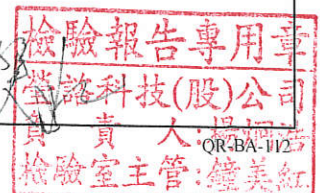 檢驗報告專用章
瑩諮科技(股)公司
負責人:楊
QR-BA-112
檢驗室主管:鐘美紅